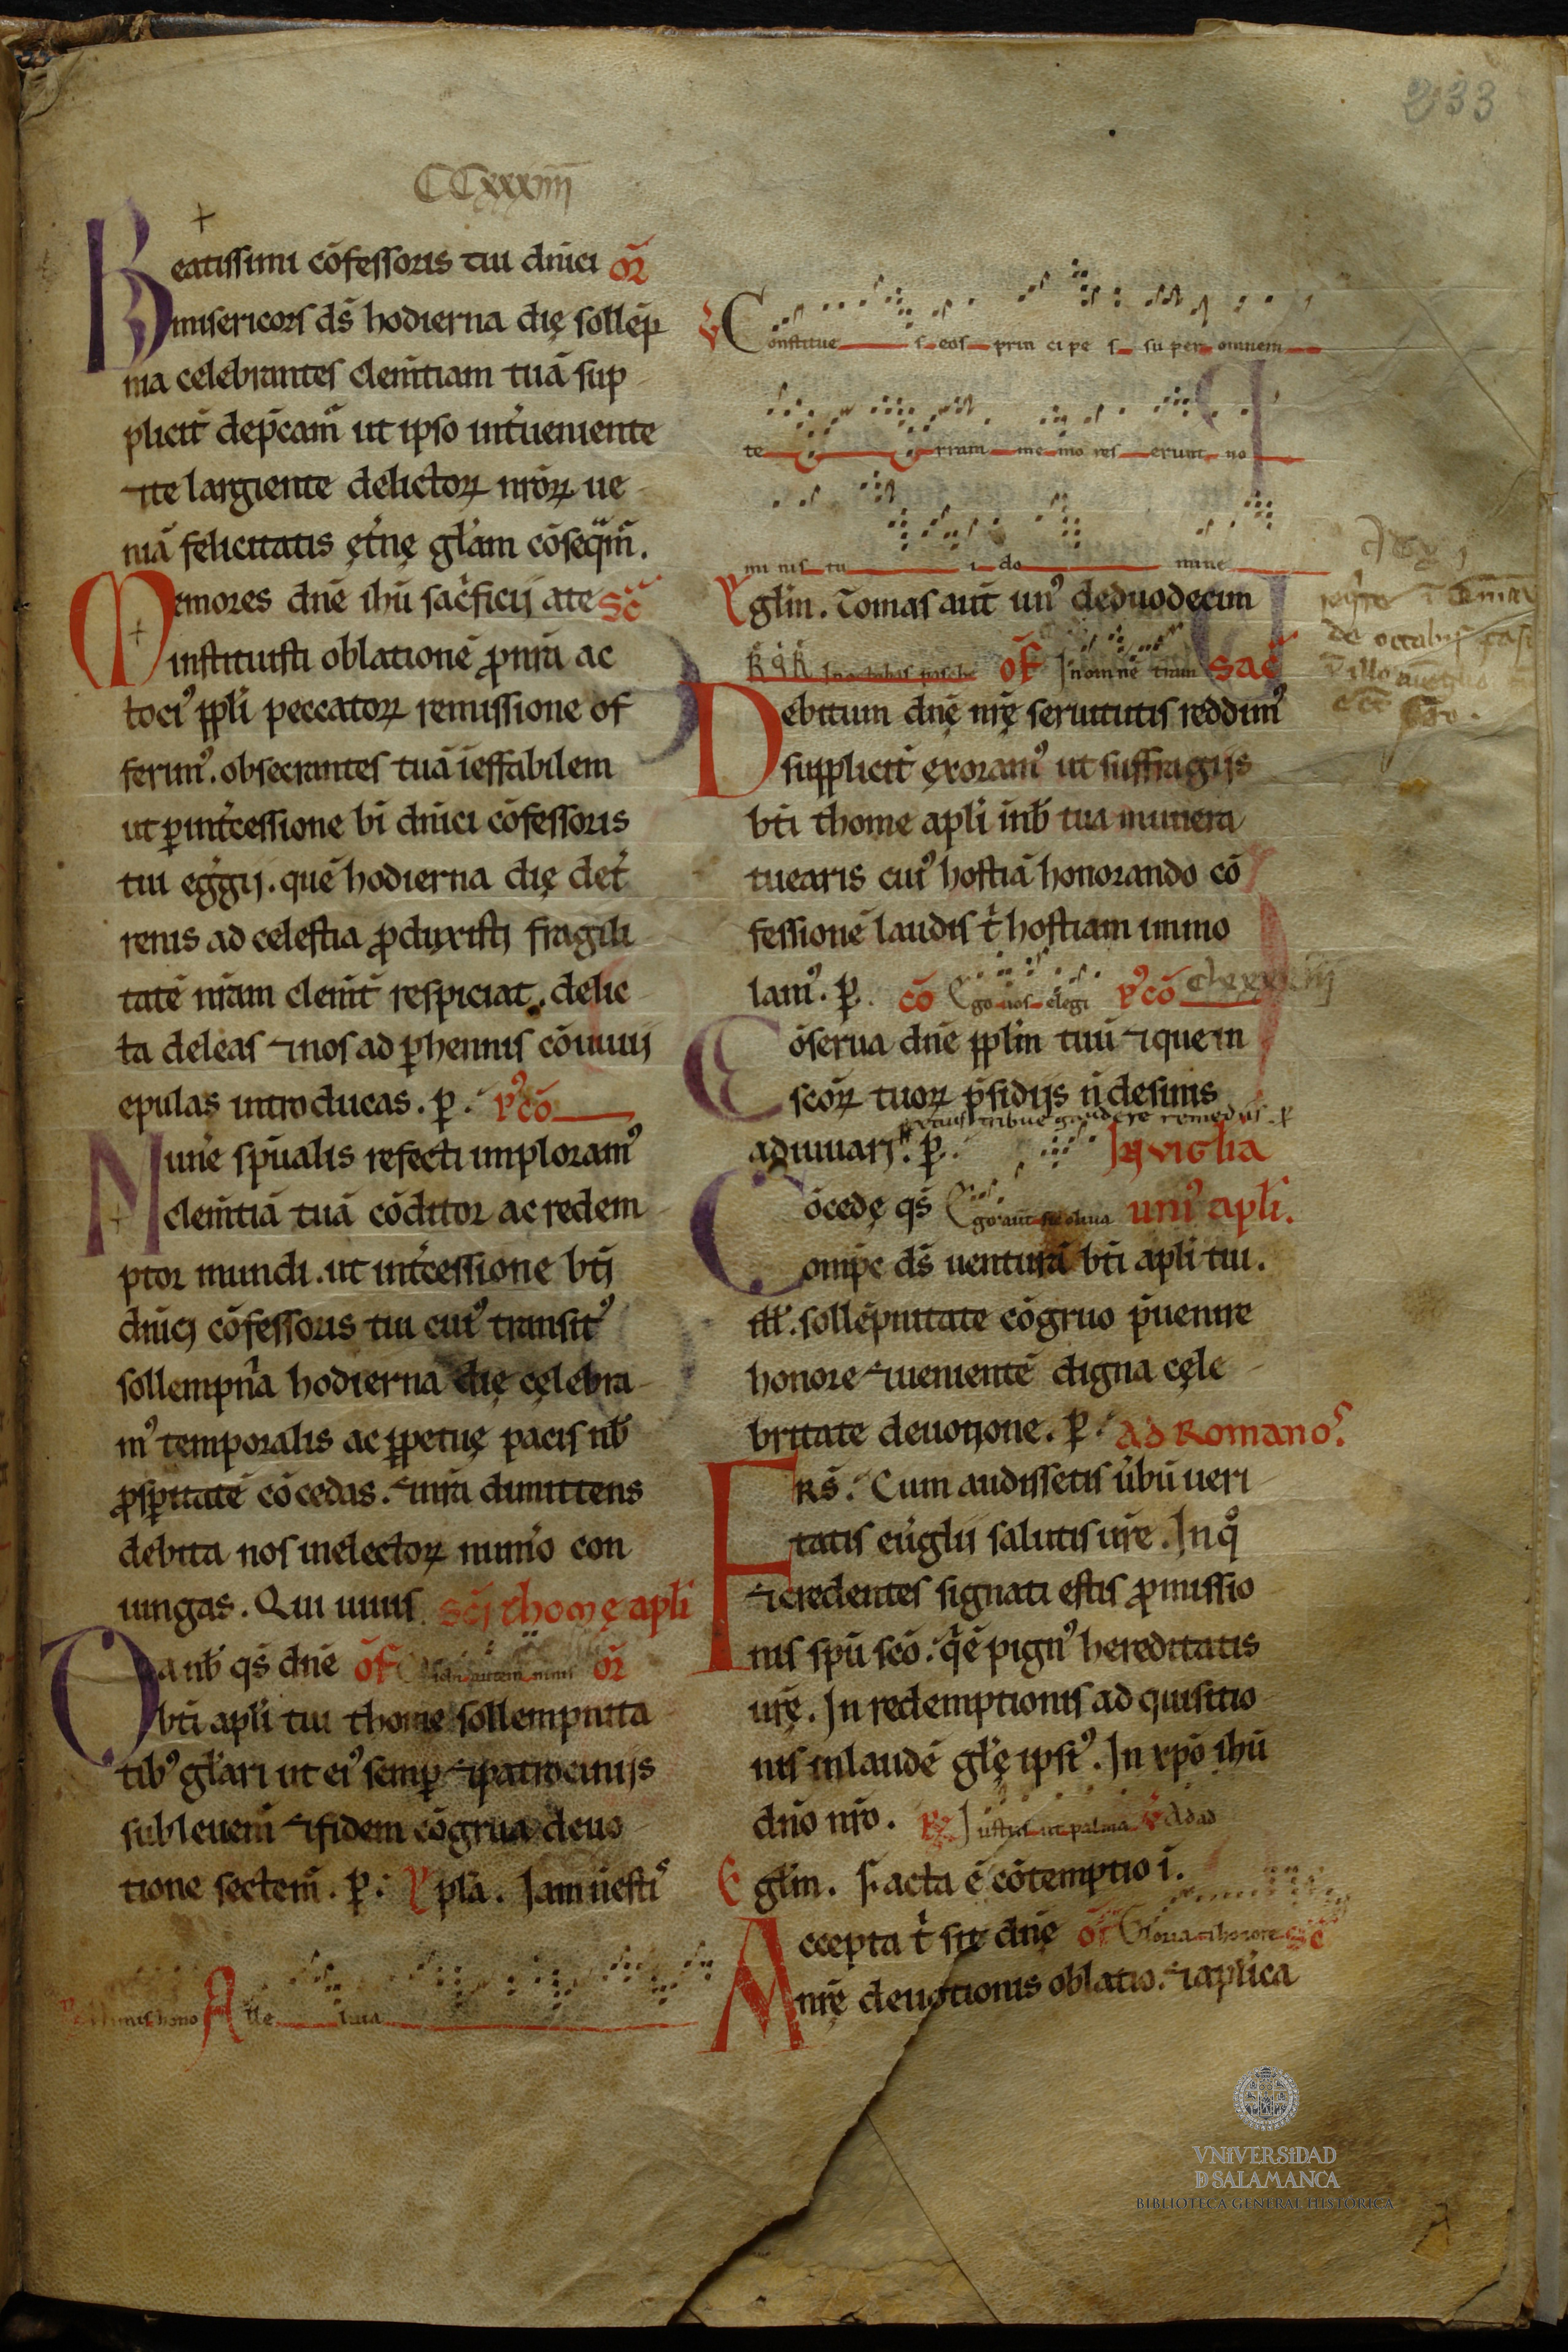 233
CCxxxiiii
Beatissimi cōfessoris tui dn̄ici or̄
misericors ds̄ hodierna die sollēp
nia celebrantes clem̄tiam tuā sup
plicit̄ dep̄cam̄ ut ipso int̄ueniente
⁊ te largiente delictoꝝ nr̄oꝝ ue
niā felicitatis et̄ne gl̄am cōseq̄m̄.
Memores dn̄e ihū sac̄ficij a te sc̄
instituisti oblationē ꝓ nr̄a ac
toci⁹ ppl̄i peccatoꝝ remissione of
ferim⁹. obsecrantes tuā ieffabilem
ut ꝑ int̄cessione bī dn̄ici cōfessoris
tui eḡgij. quē hodierna die de t̄
renis ad celestia ꝓduxisti fragili
tatē nr̄am clem̄t̄ respiciat. delic
ta deleas ⁊ nos ad ꝑhennis cōuiuij
epulas introducas. ꝑ. p⁹cō
Mun̄e sp̄ualis refecti imploram⁹
clem̄tiā tuā cōditor ac redem
ptor mundi. ut int̄cessione bt̄i
dn̄ici cōfessoris tui cui⁹ transit⁹
sollempn̄a hodierna die celebra
m⁹ temporalis ac ꝑpetue pacis nb̄
ꝓsꝑitatē cōcedas. ⁊ nr̄a dimittens
debita nos in electoꝝ num̄o con
iungas. Qui uiuis sc̄i thome apl̄i
Da nb̄ qs̄ dn̄e of̄ autem nimis or̄
bt̄i apl̄i tui thome sollempnita
tib⁹ gl̄ari ut ei⁹ semꝑ ⁊ patrocinijs
subleuem̄ ⁊ fidem cōgrua deuo
tione sectem̄. ꝑ. Epl̄a. Iam n̄ esti⁹
nimis hono Alle luia
V Constitue s eos prin cipe s super omnem
te rram me mo res erunt no
mi nis tu i do mine
Egl̄m. Tomas aut̄ un⁹ de duodecim
In octabas pasche of̄ In om̄nē tram sac̄
Debitum dn̄e nr̄e seruitutis reddim⁹
supplicit̄ exoram⁹ ut suffragijs
bt̄i thome apl̄i in nb̄ tua munera
tuearis cui⁹ hostiā honorando cō
fessionē laudis t̄ hostiam immo
lam⁹. ꝑ. cō Ego uos elegi p⁹cō clxxxiij
Cōserua dn̄e ppl̄m tuū ⁊ quem
sc̄oꝝ tuoꝝ p̄sidijs n̄ desinis
tribue gaudere remedijs. ꝑ
adiuuari. ꝑ. In vigl̄ia
Cōcede qs̄ Ego aut̄ sic oliua uni⁹ apl̄i.
omp̄e ds̄ uenturā bt̄i apl̄i tui.
ill̄. sollēpnitate cōgruo p̄uenire
honore ⁊ uenientē digna cele
britate deuotione. ꝑ. ad Romano⁹.
FRS̄. Cum audissetis ūbū ueri
tatis eūglii salutis ur̄e. In qͦ
⁊ credentes signati estis ꝓmissio
nis sp̄u sc̄o. q̄ ē pign⁹ hereditatis
ur̄e. In redemptionis ad quisitio
nis in laudē gl̄e ipsi⁹. In xp̄o ihū
dn̄o nr̄o. R Iustus ut palma V Ad ad
Egl̄m. Facta ē cōtemptio i.
Accepta t̄ sit dn̄e of̄ Gloria ⁊ honore sc̄
nr̄e deuotionis oblatio. ⁊ apl̄ica
VNIVERSIDAD
D SALAMANCA
BIBLIOTECA GENERAL HISTÓRICA